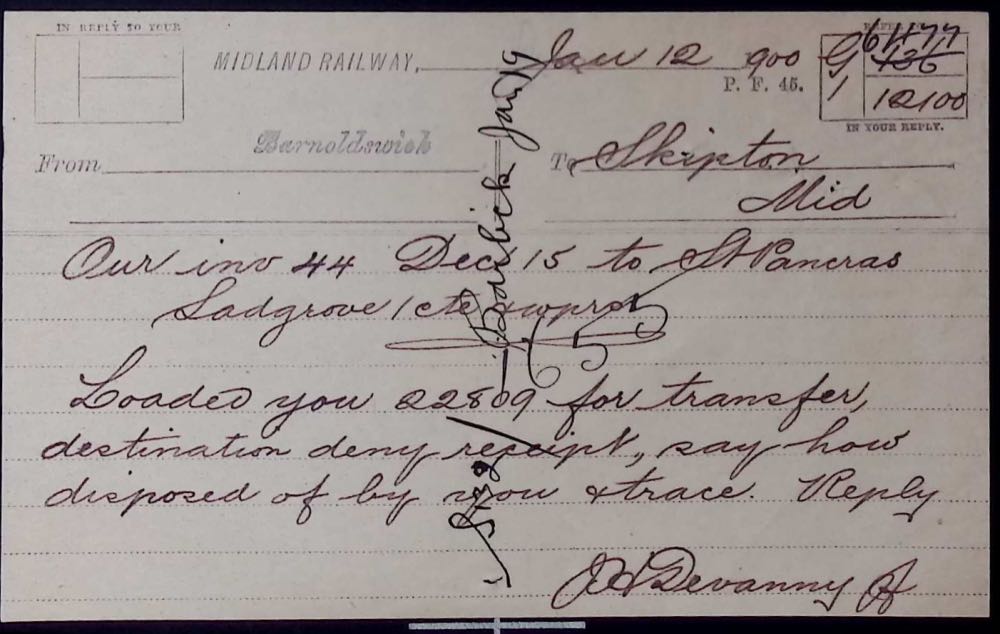 IN REPLY TO YOUR
MIDLAND RAILWAY, Jan 12 1900
P. F. 45.
REFER TO
G 61477
1 136
12100
IN YOUR REPLY.
From Barnoldswick To Skipton
Mid
Our inv 44 Dec 15 to St Pancras
Sadgrove 1 cte
Loaded you 22809 for transfer,
destination deny receipt, say how
disposed of by you & trace. Reply
JH Devanny
Jan 19